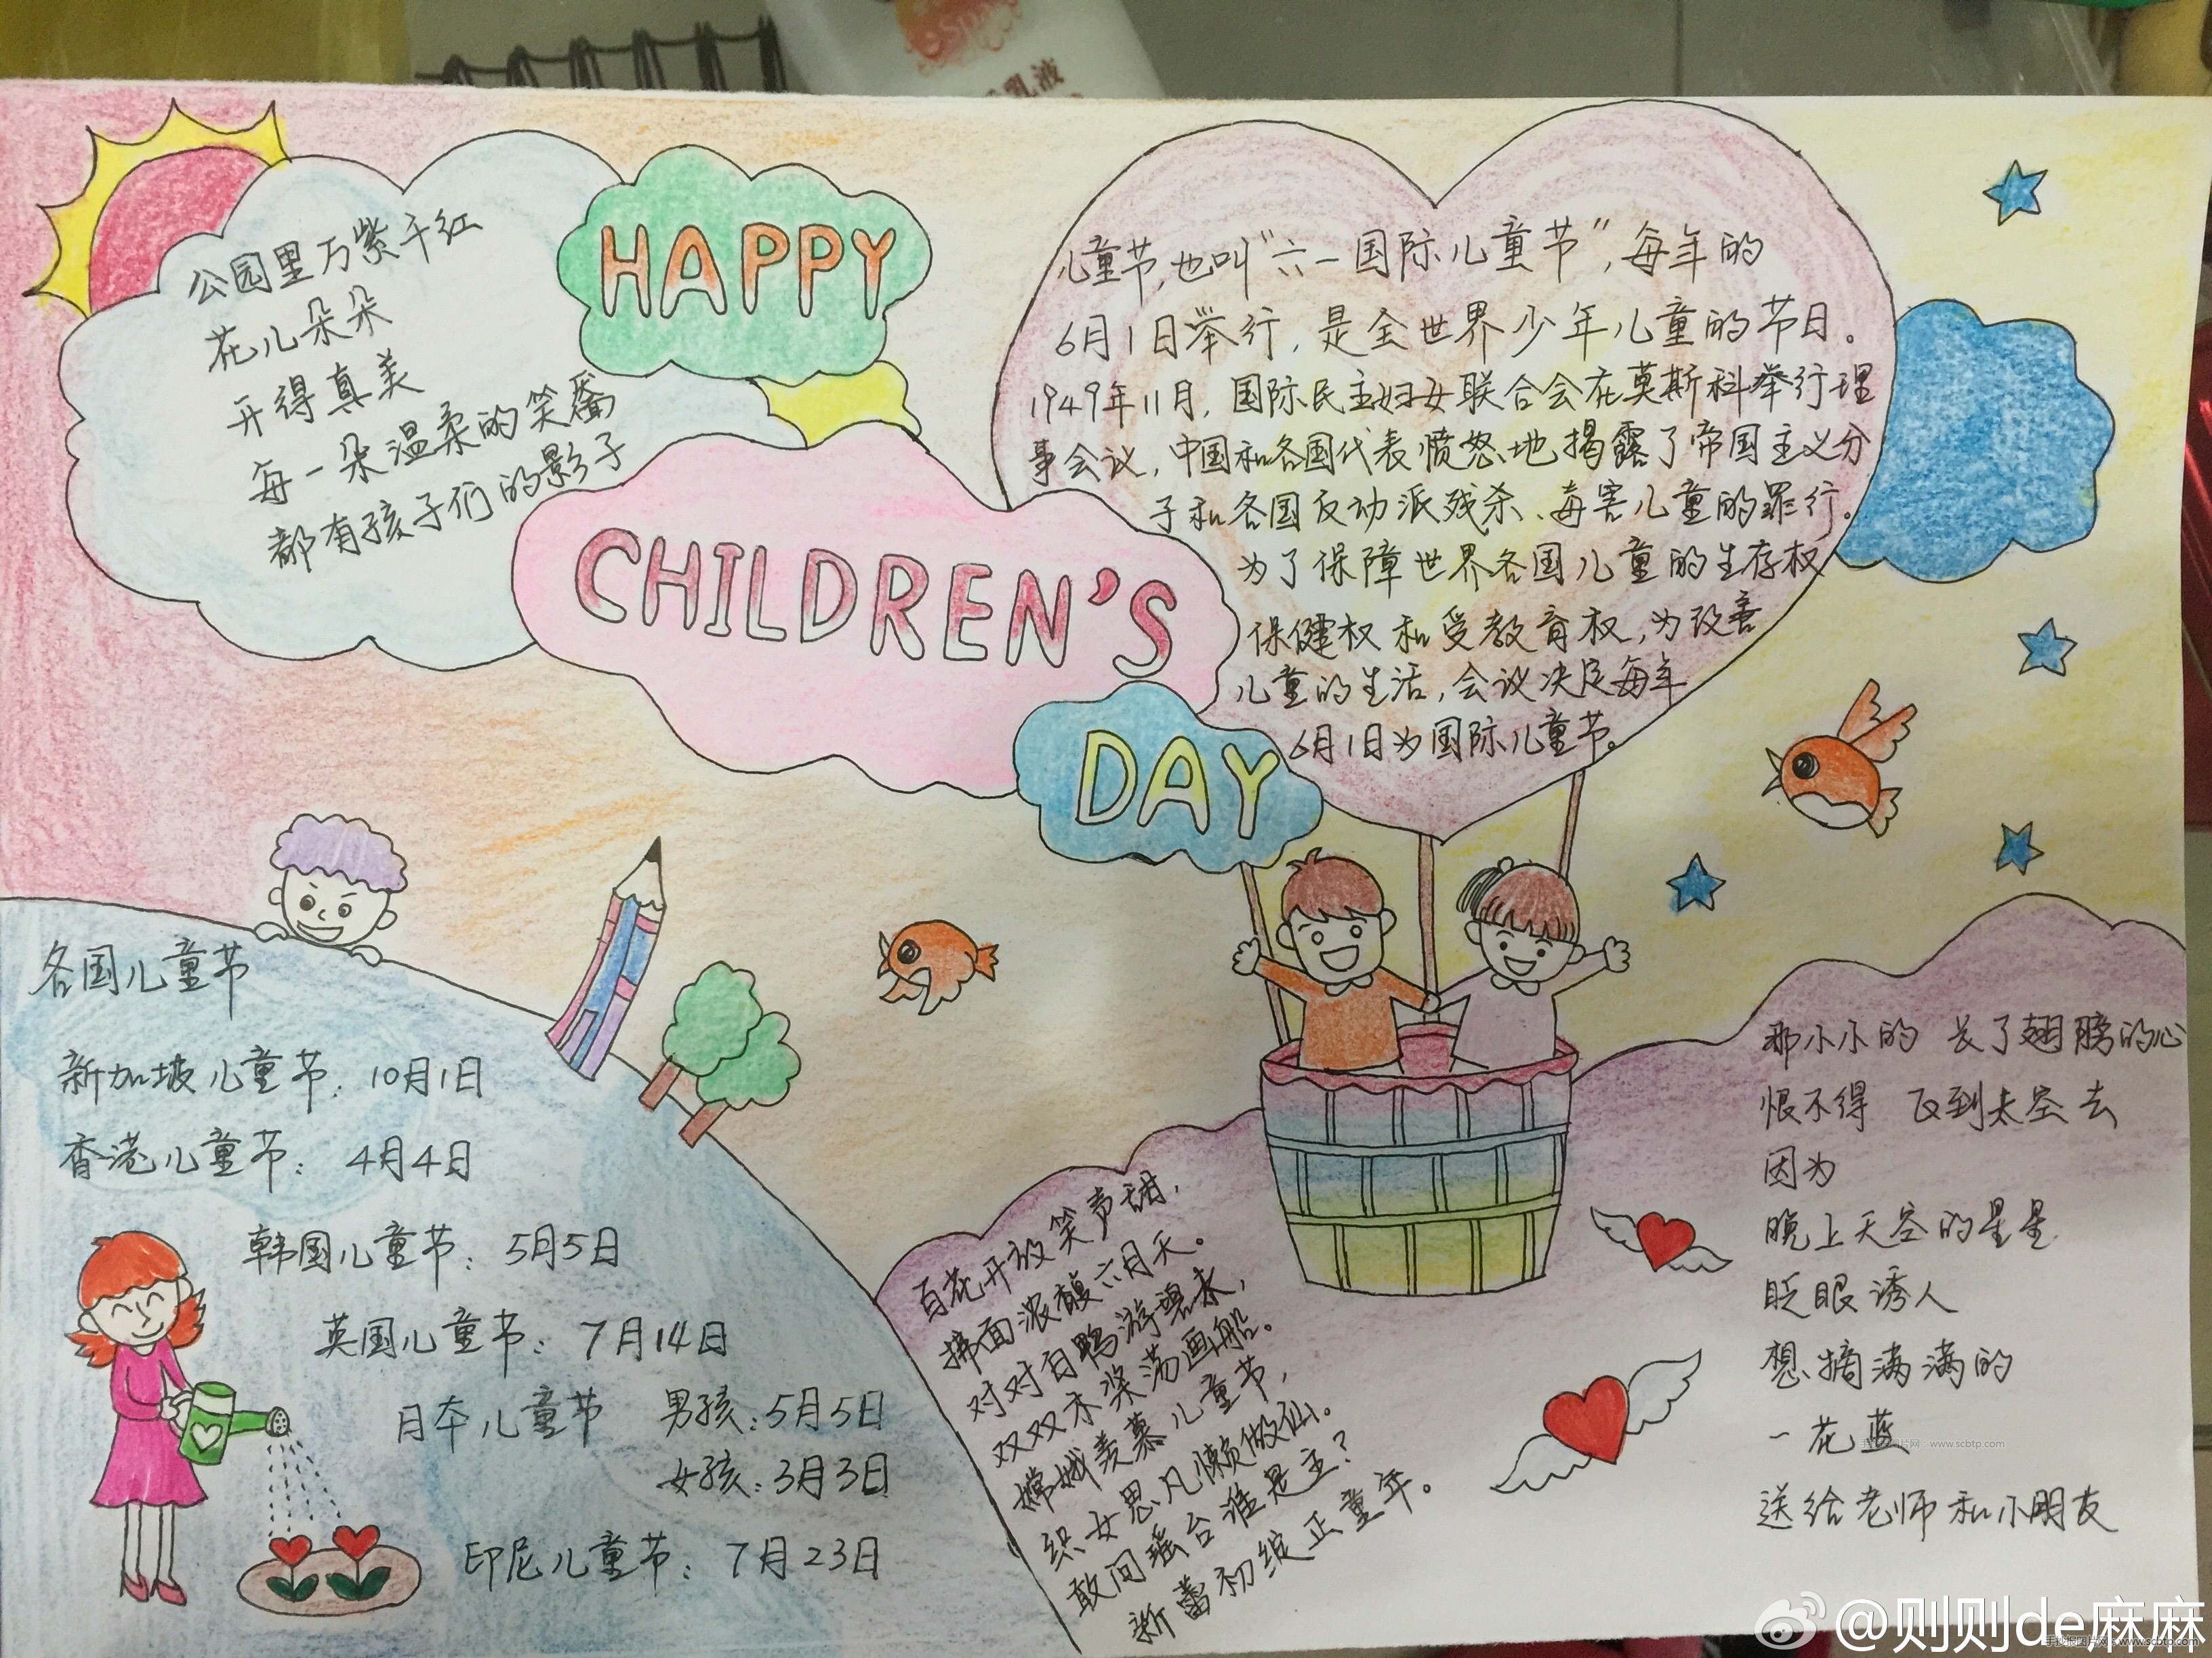 乳液
公园里万紫千红
花儿朵朵
开得真美
每一朵温柔的笑靥
都有孩子们的影子
HAPPY
CHILDREN'S
DAY
儿童节,也叫"六一国际儿童节",每年的
6月1日举行,是全世界少年儿童的节日。
1949年11月,国际民主妇女联合会在莫斯科举行理
事会议,中国和各国代表愤怒地揭露了帝国主义分
子和各国反动派残杀、毒害儿童的罪行。
为了保障世界各国儿童的生存权
保健权和受教育权,为改善
儿童的生活,会议决定每年
6月1日为国际儿童节。
各国儿童节
新加坡儿童节:10月1日
香港儿童节:4月4日
韩国儿童节:5月5日
英国儿童节:7月14日
日本儿童节 男孩:5月5日
女孩:3月3日
印尼儿童节:7月23日
百花开放笑声甜,
拂面浓馥六月天。
对对白鸭游碧水,
双双木桨荡画船。
嫦娥羡慕儿童节,
织女思凡懒做仙。
敢问瑶台谁是主?
新蕾初绽正童年。
那小小的 长了翅膀的心
恨不得 飞到太空去
因为
晚上天空的星星
眨眼诱人
想摘满满的
一花蓝
送给老师和小朋友
www.scbtp.com
@则则de麻麻
手抄报图片网 www.scbtp.com